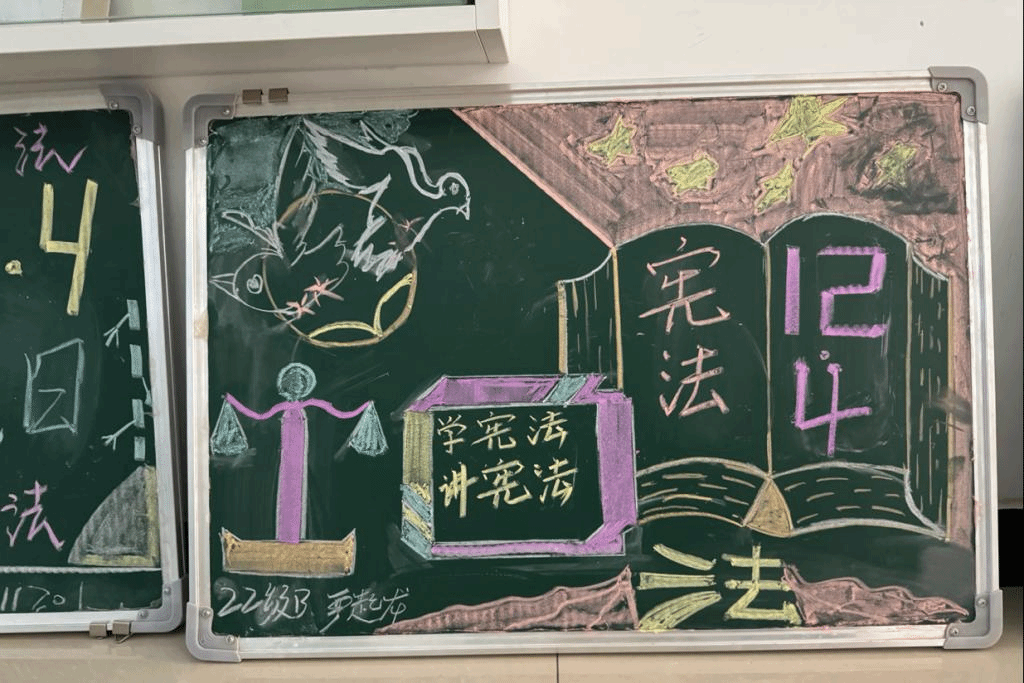 法
4
日
法
宪法
12
.4
学宪法
讲宪法
法
22级B